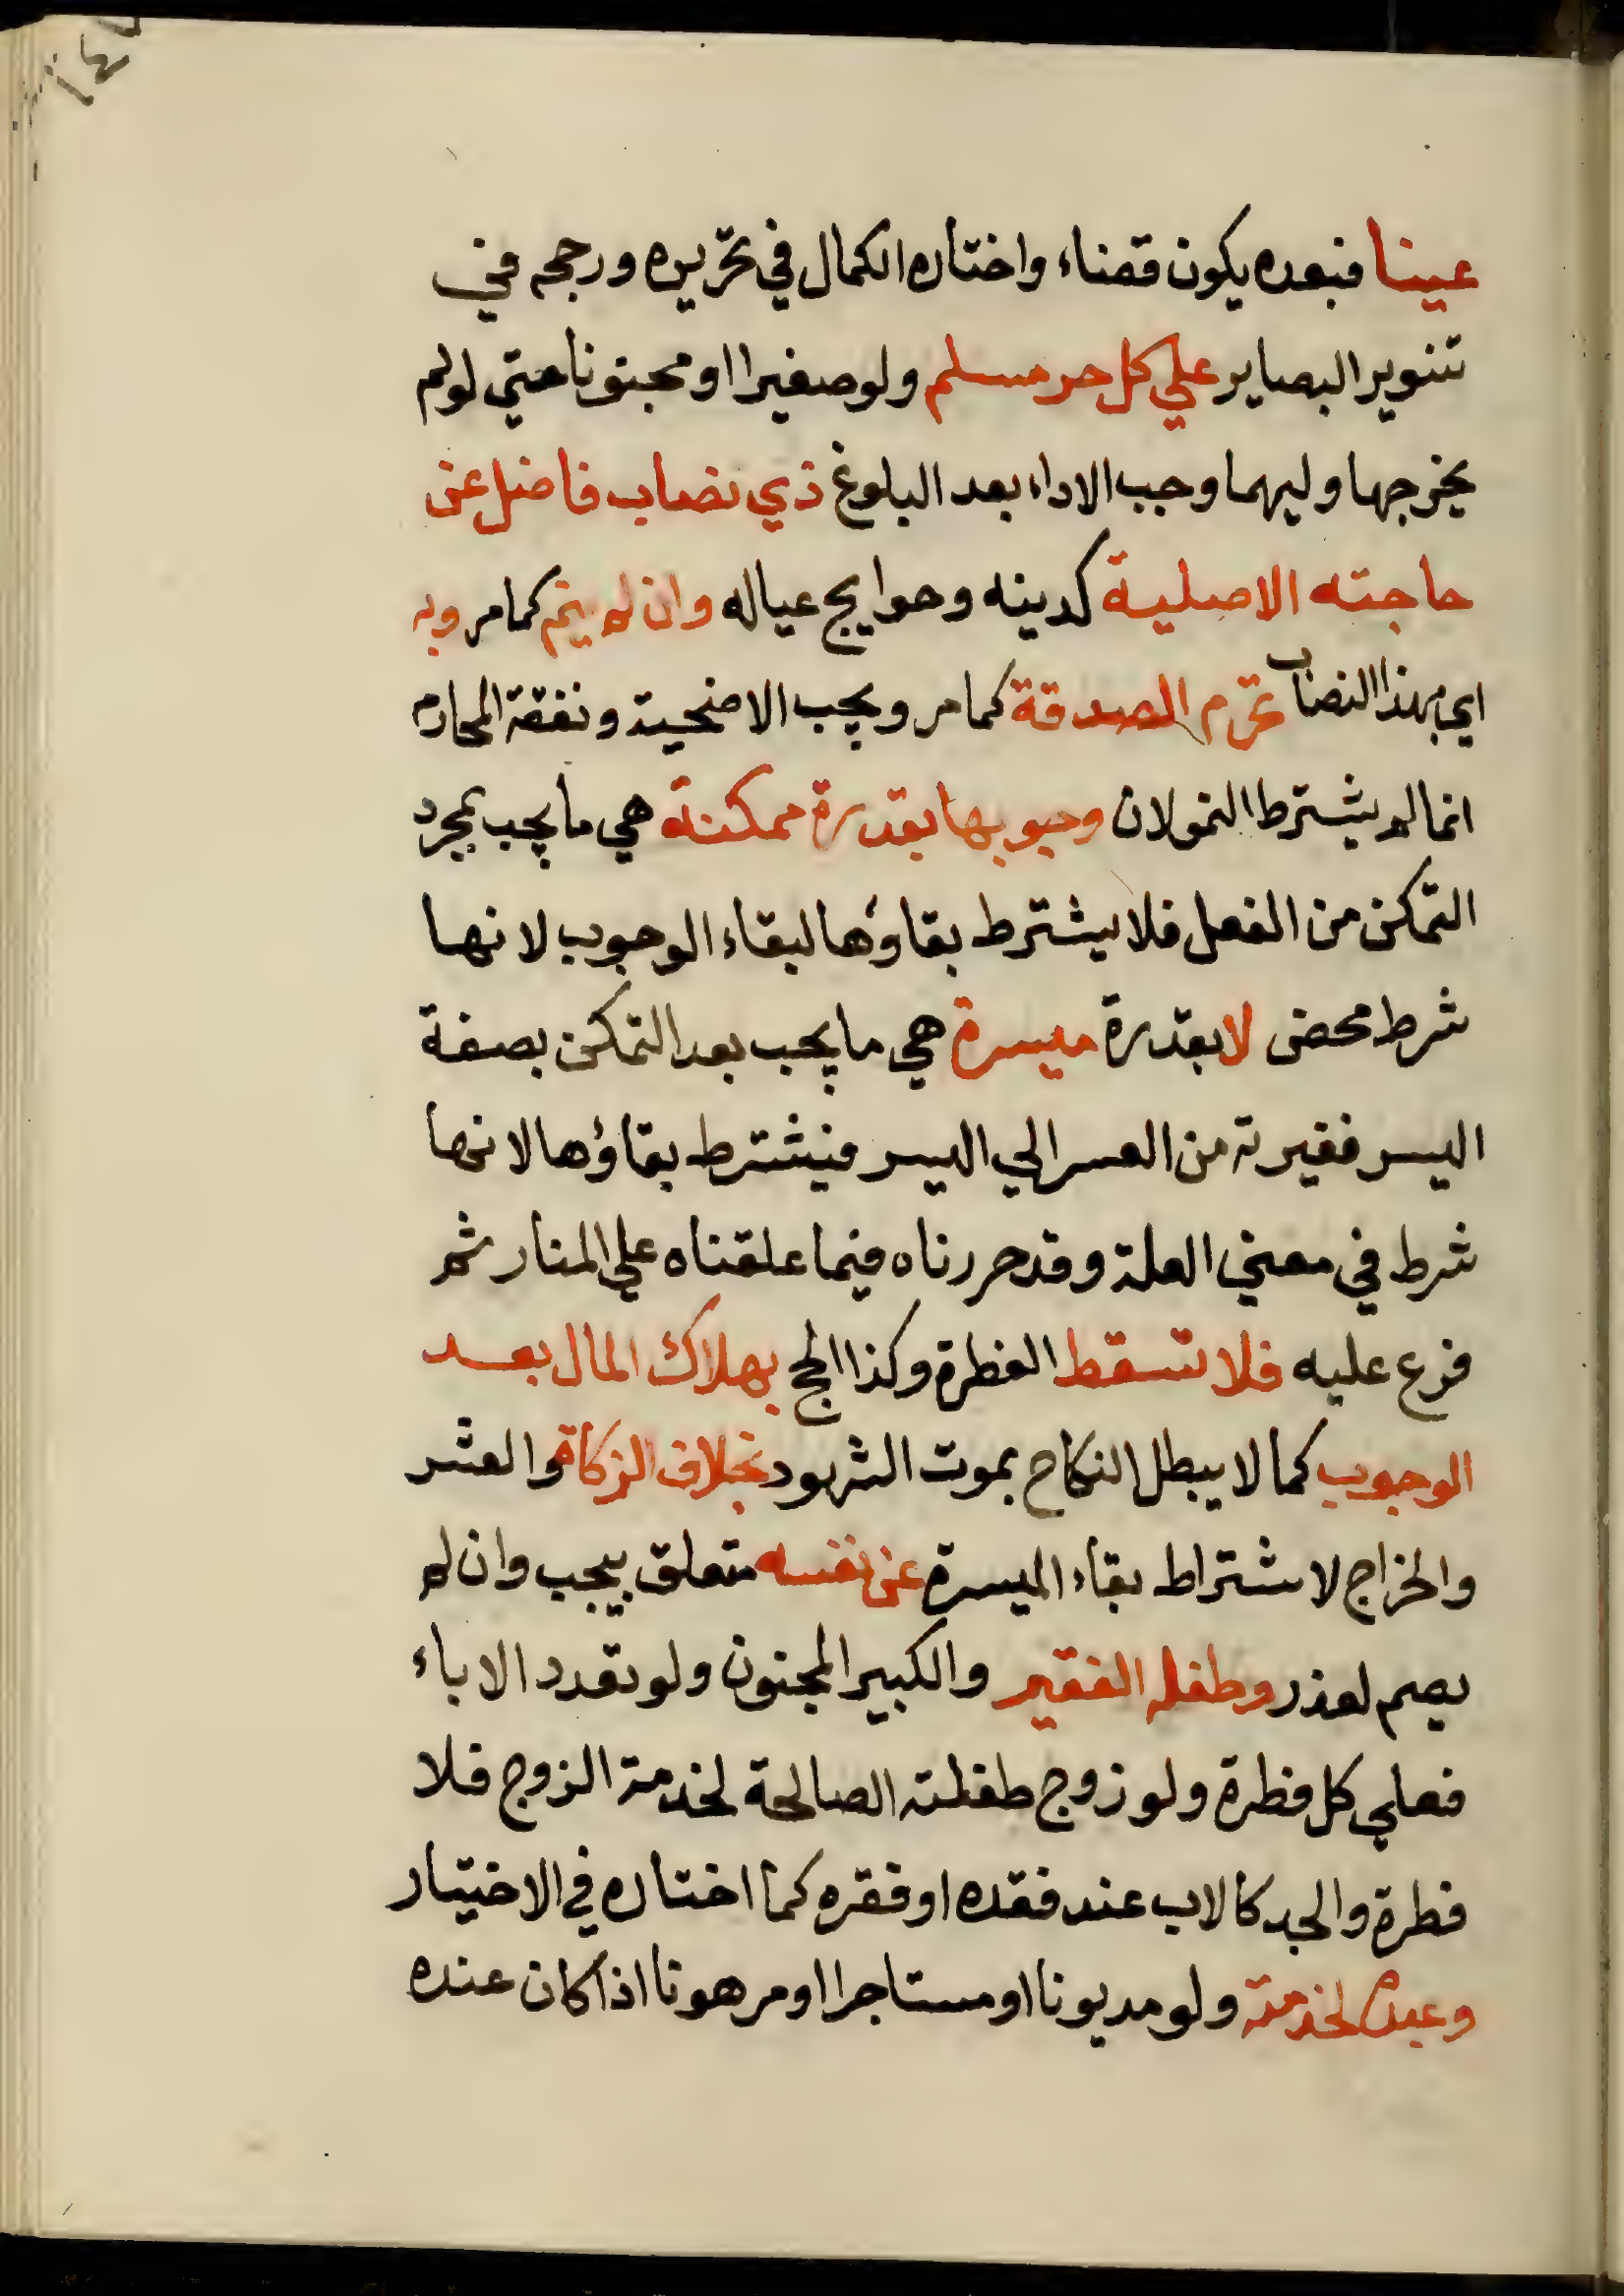 عينا فبعده يكون قضاء واختاره الكمال في تحريره ورجحه في
تنوير البصاير علي كل حر مسلم ولو صغيرا او مجنونا حتي لو لم
يخرجها وليهما وجب الاداء بعد البلوغ ذي نصاب فاضل عن
حاجته الاصلية كدينه وحوايج عياله وان لم ينم كما مر وبه
اي بهذا النصاب تحرم الصدقة كما مر ويجب الاضحية ونفقة المحارم
انما لم يشترط النمو لان وجوبها بقدرة ممكنة هي ما يجب بمجرد
التمكن من الفعل فلا يشترط بقاؤها لبقاء الوجوب لانها
شرط محض لا بقدرة ميسرة هي ما يجب بعد التمكن بصفة
اليسر فغيرته من العسر الي اليسر فيشترط بقاؤها لانها
شرط في معني العلة وقد حررناه فيما علقناه علي المنار ثم
فرع عليه فلا تسقط الفطرة وكذا الحج بهلاك المال بعد
الوجوب كما لا يبطل النكاح بموت الشهود بخلاف الزكاة والعشر
والخراج لاشتراط بقاء الميسرة عن نفسه متعلق بيجب وان لم
يصم لعذر وطفله الفقير والكبير المجنون ولو تعدد الاباء
فعلي كل فطرة ولو زوج طفلته الصالحة لخدمة الزوج فلا
فطرة والجد كالاب عند فقده او فقره كما اختاره في الاختيار
وعبده لخدمته ولو مديونا او مستاجرا او مرهونا اذا كان عنده